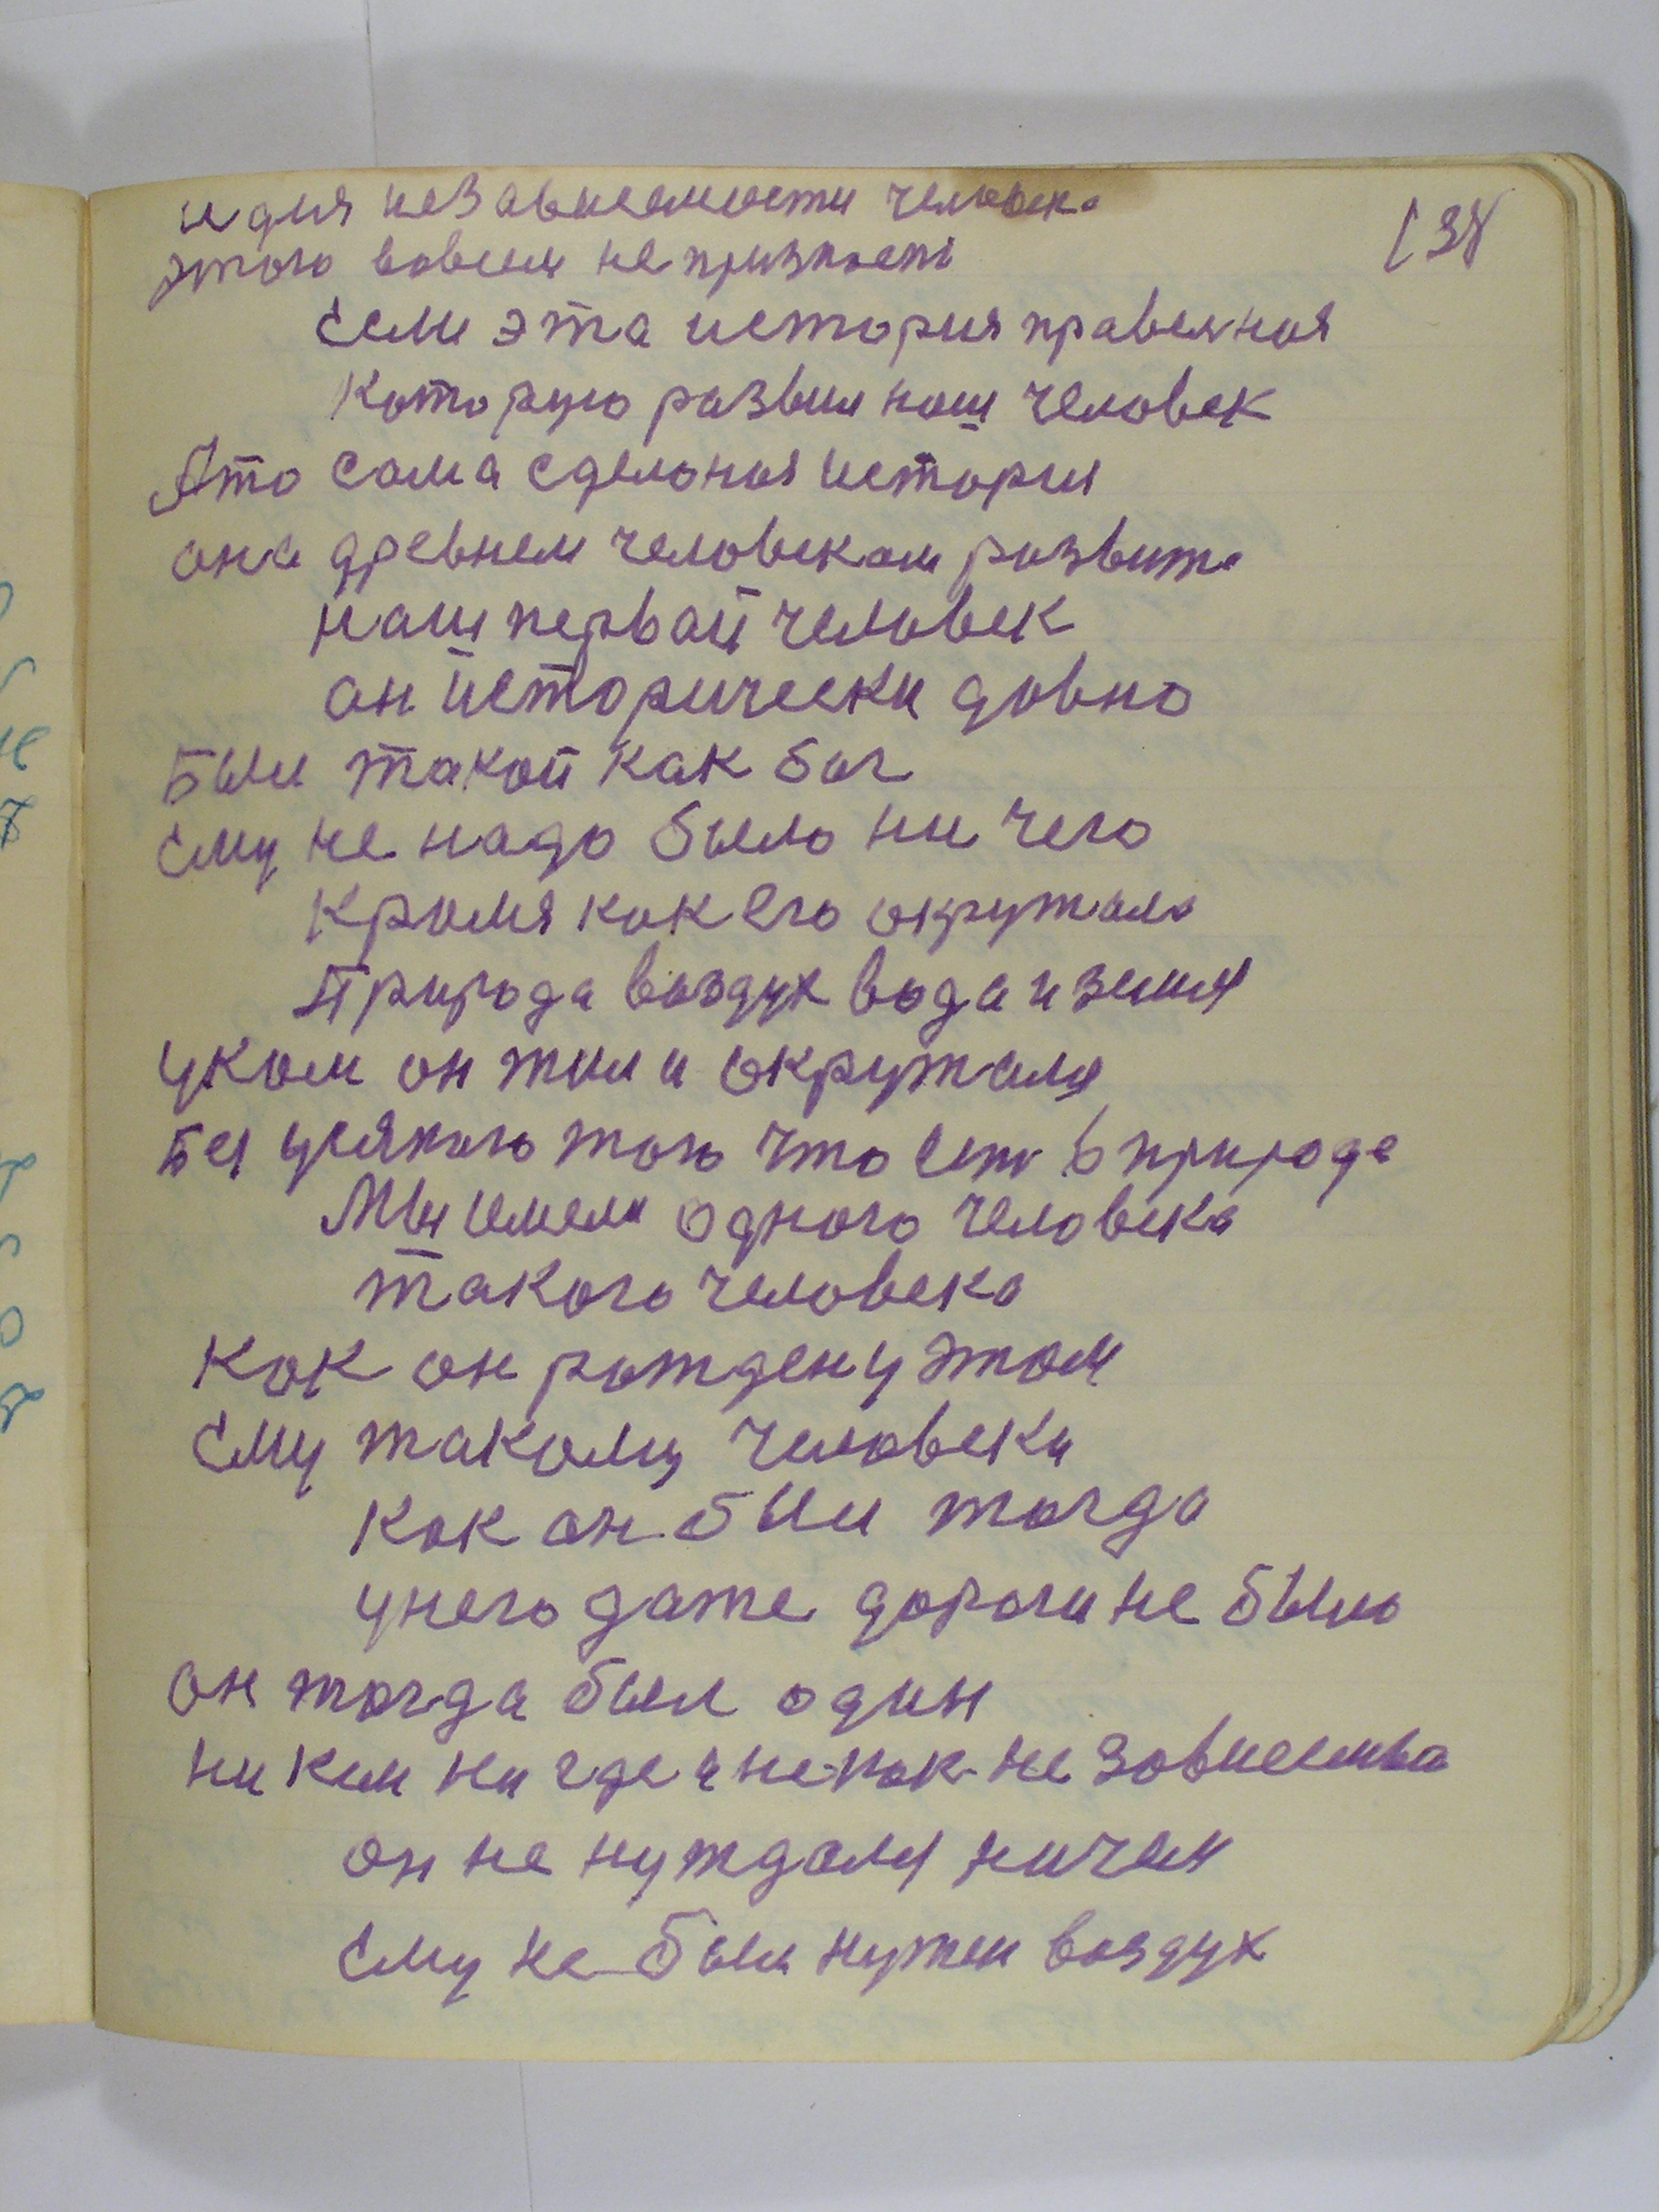 и для независемости человека
138
этого вовсем не признает
Если эта история правелная
Которую развил наш человек
Это сама сделоная история
она древнем человеком развита
наш первай человек
он исторически давно
Был такой как бог
Ему не надо было ни чего
Кромя как его окружала
Природа воздух вода и земля
у ком он жил и окружался
Без усякого того что есть в природе
Мы имели одного человека
такого человека
Как он рожден у этом
Ему такому человеки
Как он был тогда
у него даже дороги не было
он тогда был один
ни кем ни где и не как не зависемва
он не нуждался ничем
Ему не был нужен воздух